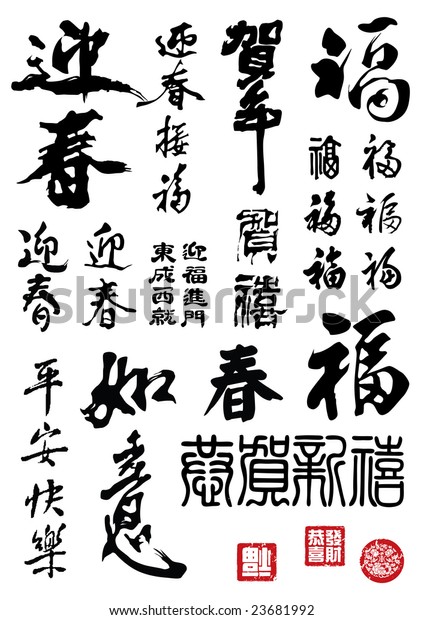 迎春
迎春接福
賀年
福
福福
福福
福福
迎春
迎春
迎福進門
東成西就
賀禧
春
福
平安快樂
如意
恭賀新禧
福
發財
恭喜
shutterstock.com · 23681992